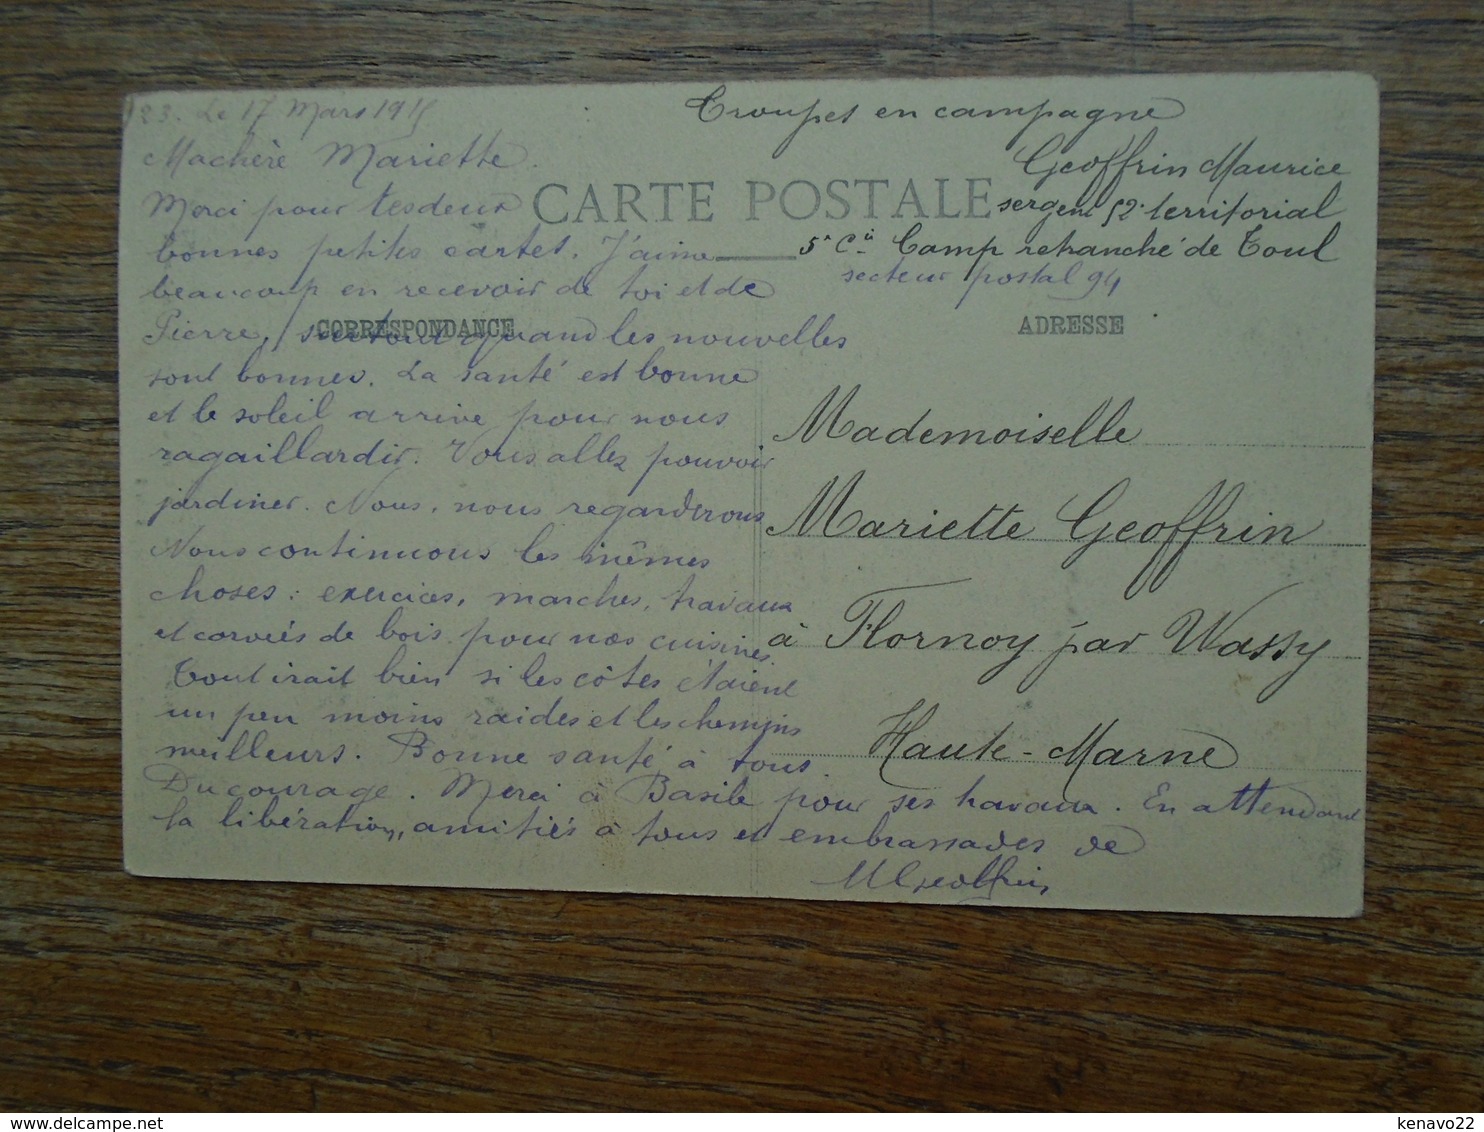 23. Le 17 Mars 1915
Ma chère Mariette.
Merci pour tes deux
bonnes petites cartes. J'aime
beaucoup en recevoir de toi et de
Pierre, surtout quand les nouvelles
sont bonnes. La santé est bonne
et le soleil arrive pour nous
ragaillardir. Vous allez pouvoir
jardiner. Nous, nous regarderons
Nous continuons les mêmes
choses : exercices, marches, travaux
et corvées de bois pour nos cuisines.
Tout irait bien si les côtes étaient
un peu moins raides et les chemins
meilleurs. Bonne santé à tous.
Du courage. Merci à Basile pour ses travaux. En attendant
la libération, amitiés à tous et embrassades de
MGeoffrin
Troupes en campagne
Geoffrin Maurice
sergent 52e territorial
5e Cie Camp retranché de Toul
secteur postal 94
CARTE POSTALE
CORRESPONDANCE
ADRESSE
Mademoiselle
Mariette Geoffrin
à Flornoy par Wassy
Haute-Marne
kenavo22